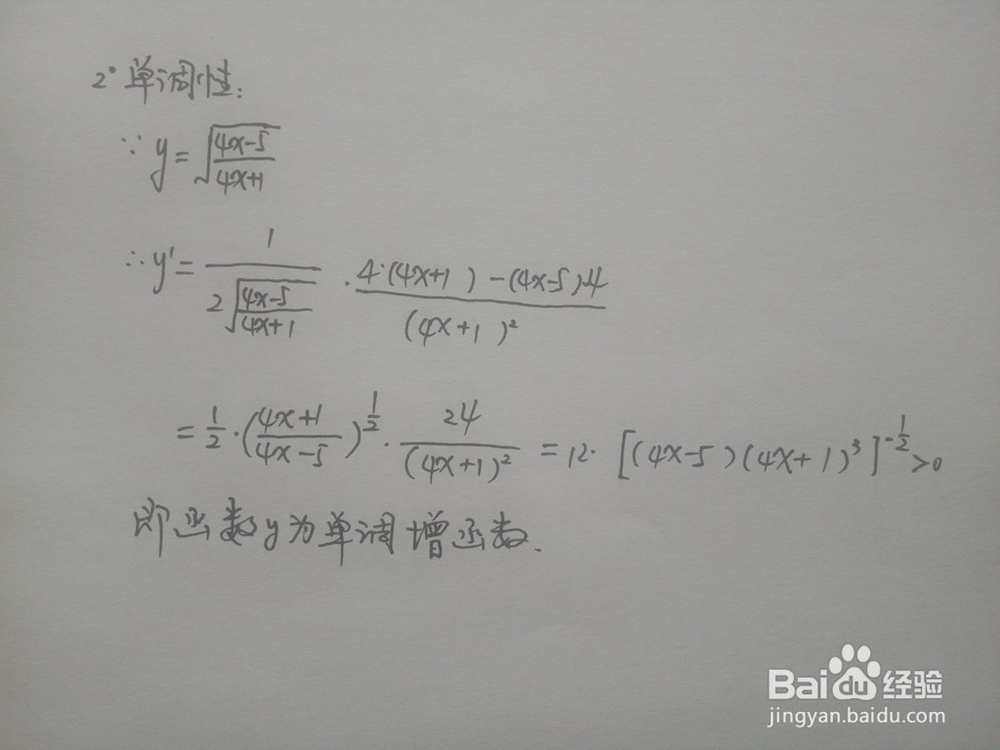 2° 单调性:
∵ y = √((4x-5)/(4x+1))
∴ y' = 1/(2√((4x-5)/(4x+1))) · (4·(4x+1) - (4x-5)·4)/(4x+1)²
= 1/2 · ((4x+1)/(4x-5))^(1/2) · 24/(4x+1)² = 12 · [(4x-5)(4x+1)³]^(-1/2) > 0
即函数y为单调增函数.
Baidu经验
jingyan.baidu.com